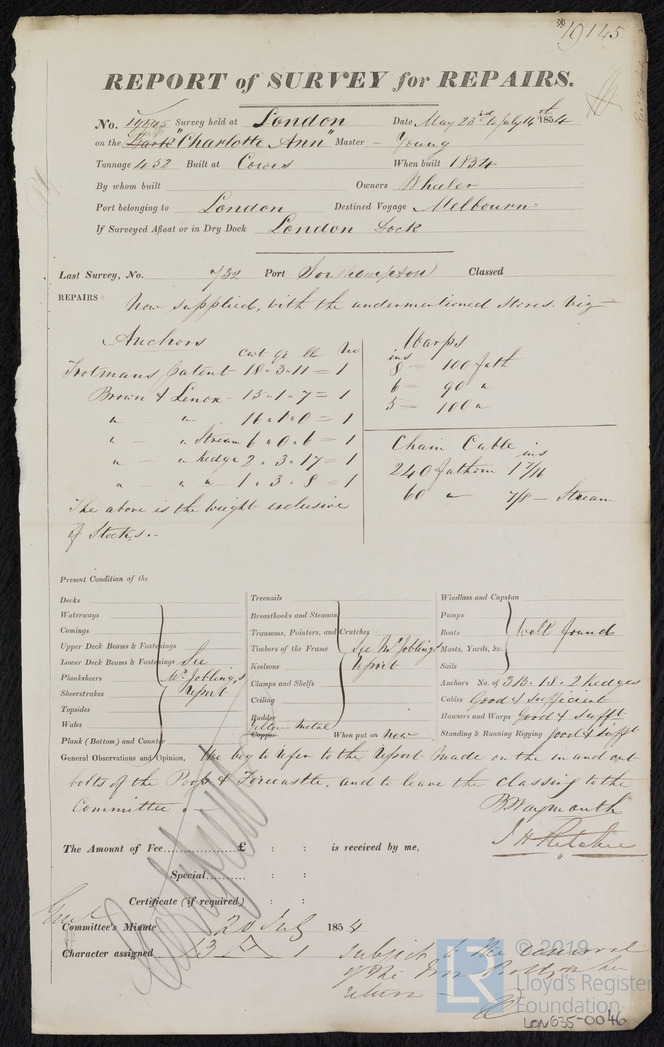 #19145
REPORT of SURVEY for REPAIRS.
No. 19145 Survey held at London Date May 23rd to July 14th 1854
on the Bark "Charlotte Ann" Master - Young
Tonnage 452 Built at Cowes When built 1834
By whom built Owners Wheeler
Port belonging to London Destined Voyage Melbourne
If Surveyed Afloat or in Dry Dock London Dock
Last Survey, No. 732 Port Southampton Classed
REPAIRS Now supplied, with the undermentioned Stores. viz
Anchors
cwt qr lbs No
Trotmans patent 18 - 3 - 11 = 1
Brown & Lenox - 15 - 1 - 7 = 1
" - " 16 - 1 - 0 = 1
" - " Stream 6 - 0 - 6 = 1
" - " Kedge 2 - 3 - 17 = 1
" - " " 1 - 3 - 8 = 1
The above is the weight exclusive
of Stocks.-
Warps
ins
8 = 100 fath
6 = 90 "
5 = 100 "
Chain Cable
ins
240 fathom 1 7/16
60 " 7/8 - Stream
Present Condition of the
Decks
Waterways
Comings
Upper Deck Beams & Fastenings
Lower Deck Beams & Fastenings
Planksheers
Sheerstrakes
Topsides
Wales
Plank (Bottom) and Counter
See
Mr Jobling's
Report
Treenails
Breasthooks and Stemson
Transoms, Pointers, and Crutches
Timbers of the Frame
Keelsons
Clamps and Shelfs
Ceiling
Rudder
Yellow Metal
Copper When put on New
See Mr Jobling's
Report
Windlass and Capstan
Pumps
Boats
Masts, Yards, &c.
Sails
Well found
Anchors No. of 3B. 1S. 2 Kedges
Cables Good & Sufficient
Hawsers and Warps Good & Sufft
Standing & Running Rigging Good & Sufft
General Observations and Opinion, We beg to refer to the Report made on the in and out
bolts of the Poop & Forecastle, and to leave the classing to the
Committee. -
B Waymouth
The Amount of Fee £ : : is received by me,
Special : :
Certificate (if required) : :
Committee's Minute 20 July 1854
Character assigned 1
subject to the
return
© 2019
LR Lloyd's Register
Foundation
LON635-0046